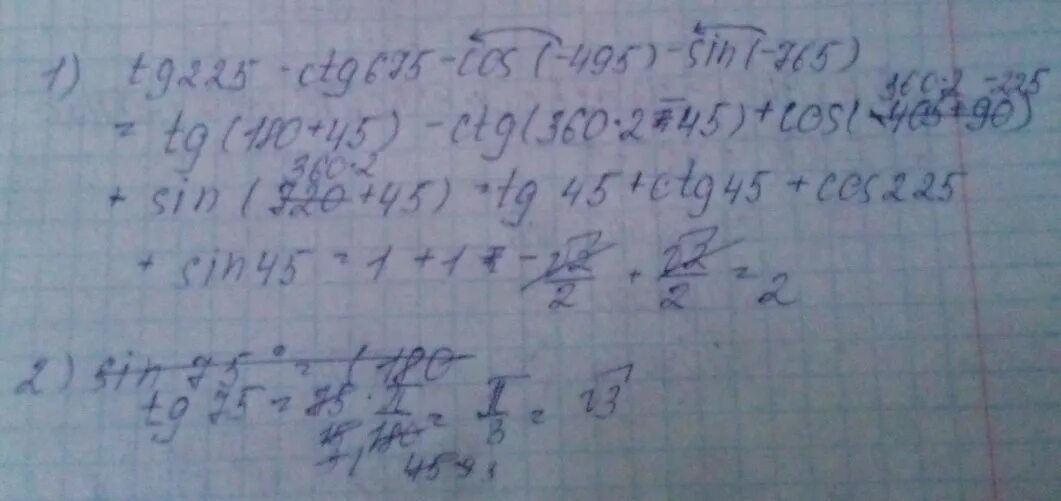 1) tg225 - ctg675 - cos(-495) - sin(-765)
360·2 -225
= tg(180+45) - ctg(360·2-45) + cos(-405+90)
360·2
+ sin(720+45) = tg 45 + ctg45 + cos225
+ sin45 = 1 + 1 - √2/2 + √2/2 = 2
2) sin 75° = (180
tg 75 = 75·π/180 = π/3 = √3